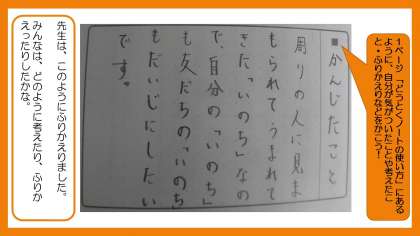 1ページ「どうとくノートの使い方」にある
ように、自分が気がついたことや考えたこ
と・ふりかえりなどをかこう！
■かんじたこと
周りの人に見ま
もられてうまれて
きた「いのち」なの
で、自分の「いのち」
も友だちの「いのち」
もだいじにしたい
です。
先生は、このようにふりかえりました。
みんなは、どのように考えたり、ふりか
えったりしたかな。